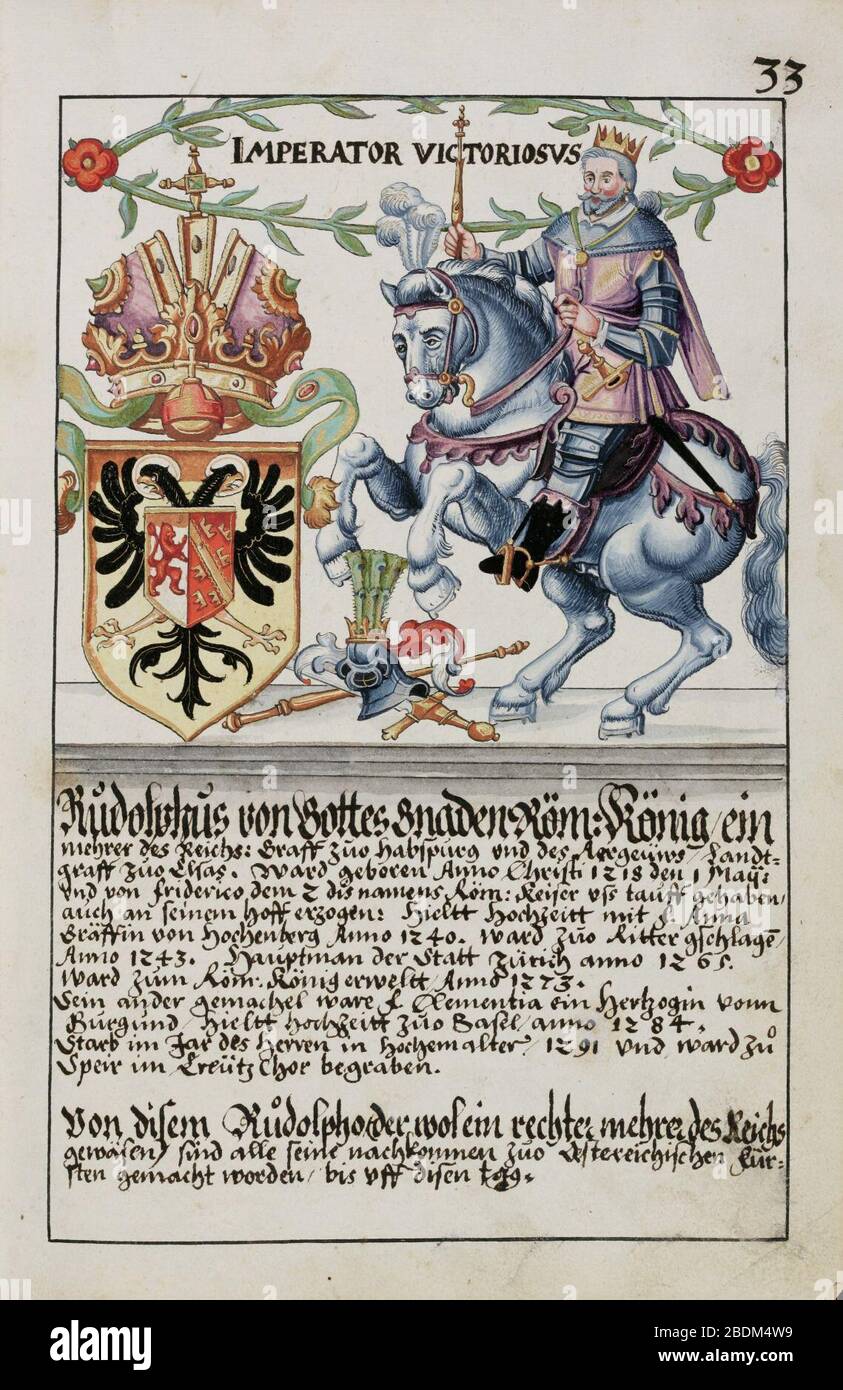 33
IMPERATOR VICTORIOSVS
Růdolphus von Gottes Gnaden Röm: König / ein
mehrer des Reichs: Graff zuo Habspurg und des Aergeüws / Landt-
graff zuo Elsas. Ward geboren Anno Christi 1218 den 1 Maÿ:
Und von friderico dem 2 dis namens Röm: Keiser uss tauff gehaben /
auch an seinem hoff erzogen: Hieltt Hochzeitt mit f. Anna
Gräffin von Hochenberg Anno 1240. Ward zuo Ritter gschlagē /
Anno 1243. Hauptman der Statt Zürich anno 1265.
Ward zum Röm: König erweltt / Anno 1273.
Sein ander gemachel ware f. Clementia ein Hertzogin vonn
Burgund / Hieltt Hochzeitt zuo Basel / anno 1284.
Starb im Jar des Herren in Hochem alter / 1291 und ward zů
Speir im Creütz Chor begraben.
Von disem Růdolpho / der wol ein rechter mehrer des Reichs
gewäsen / sind alle seine nachkommen zuo Östereichischen Für-
sten gemacht worden / bis uff disen tag.
alamy
Image ID: 2BDM4W9
www.alamy.com